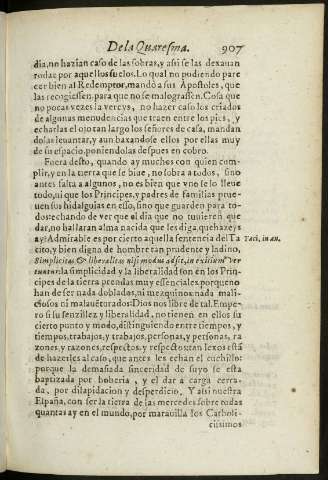 De la Quaresma. 907
dia, no hazian caso de las sobras, y assi se las dexauan
todas por aquellos suelos. Lo qual no pudiendo pare
cer bien al Redemptor, mandò a sus Apostoles, que
las recogiessen, para que no se malograssen. Cosa que
no pocas vezes la vereys, no hazer caso los criados
de algunas menudencias que traen entre los pies, y
echarlas el ojo tan largo los señores de casa, mandan
dolas leuantar, y aun baxandose ellos por ellas muy
de su espacio, poniendolas despues en cobro.
Fuera desto, quando ay muchos con quien cum-
plir, y en la tierra que se biue, no sobra a todos, sino
antes falta a algunos, no es bien que vno se lo lleue
todo, ni que los Principes, y padres de familias prue-
uen sus hidalguias en esso, sino que guarden para to-
dos: echando de ver que al dia que no tuuieren que
dar, no hallaran alma nacida que les diga, que hazeys
ay? Admirable es por cierto aquella sentencia del Ta
Taci. in an.
cito, y bien digna de hombre tan prudente y ladino,
Simplicitas & liberalitas nisi modus adsit, in exitium ver
tuntur: la simplicidad y la liberalidad son en los Prin
cipes de la tierra prendas muy essenciales, porque no
han de ser nada doblados, ni mezquinos: nada mali-
ciosos ni malauenturados: Dios nos libre de tal. Empe-
ro si su senzillez y liberalidad, no tienen en ellos su
cierto punto y modo, distinguiendo entre tiempos, y
tiempos, trabajos, y trabajos, personas, y personas, ra
zones, y razones, respectos, y respectos, tan lexos està
de hazerles al caso, que antes les echan el cuchillo:
porque la demasiada sinceridad de suyo se esta
baptizada por boberia, y el dar a carga cerra-
da, por dilapidacion y desperdicio. Y assi nuestra
España, con ser la tierra de las mercedes sobre todas
quantas ay en el mundo, por marauilla los Catholi-
cissimos